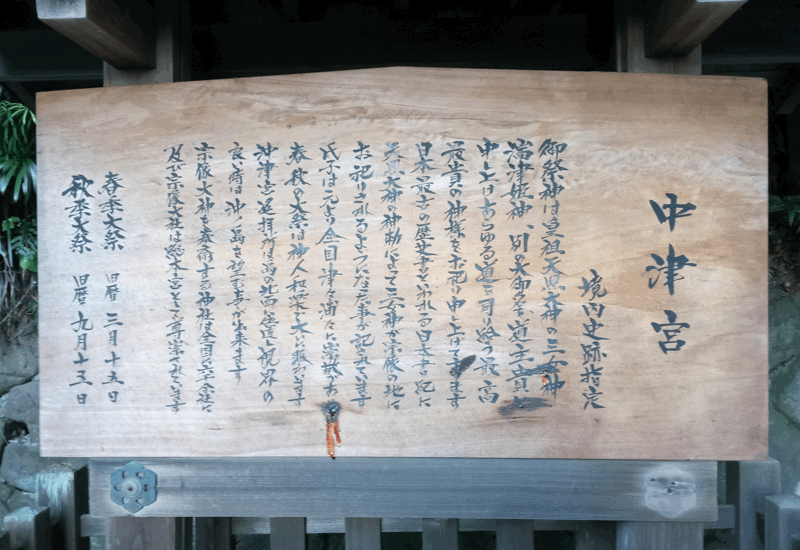 中津宮
境内史跡指定
御祭神は皇祖天照大神の三女神
湍津姫神、別の御名を道主貴と
申し上げあらゆる道を司り給う最高
最貴の神様をお祀り申し上げてあります
日本最古の歴史書といわれる日本書紀に
天照大神の神勅によって三女神が宗像の地に
お祀りされるようになった事が記されています
氏子は元より全国津々浦々に崇敬され
春秋の大祭は神人和楽が大いに賑ひます
沖津宮遥拝所は島の北面に位置し視界の
良い時は沖ノ島を望む事が出来ます
宗像大神を奉斎する神社は全国に六千余社に
及び宗像大社は総本宮として尊崇されています
春季大祭 旧暦 三月十五日
秋季大祭 旧暦 九月十五日